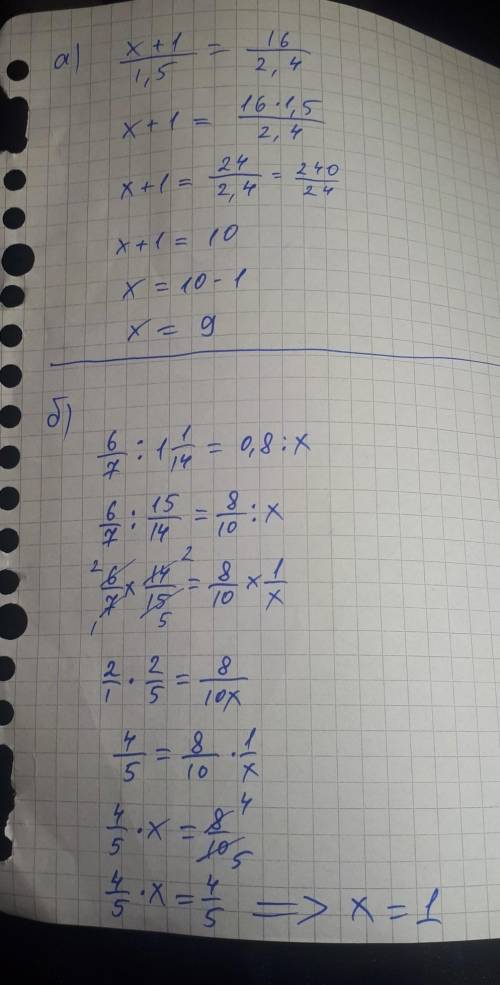 а) x+1/1,5 = 16/2,4
x+1 = 16·1,5/2,4
x+1 = 24/2,4 = 240/24
x+1 = 10
x = 10-1
x = 9
б)
6/7 : 1 1/14 = 0,8 : x
6/7 : 15/14 = 8/10 : x
2 6/7 1 x 14 2/15 5 = 8/10 x 1/x
2/1 · 2/5 = 8/10x
4/5 = 8/10 · 1/x
4/5 · x = 8 4/10 5
4/5 · x = 4/5 ⟹ x = 1